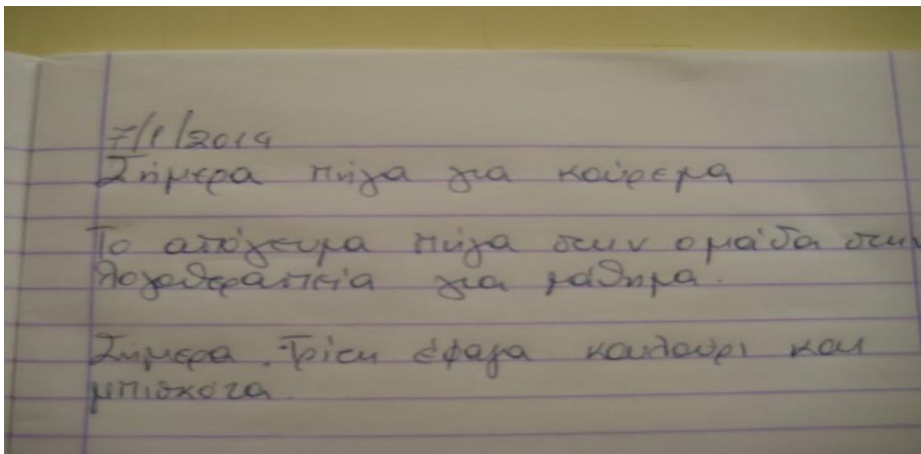 7/1/2014
Σήμερα πήγα για κούρεμα
Το απόγευμα πήγα στην ομάδα στην
λογοθεραπεία για μάθημα.
Σήμερα Τρίτη έφαγα κουλούρι και
μπισκότα.